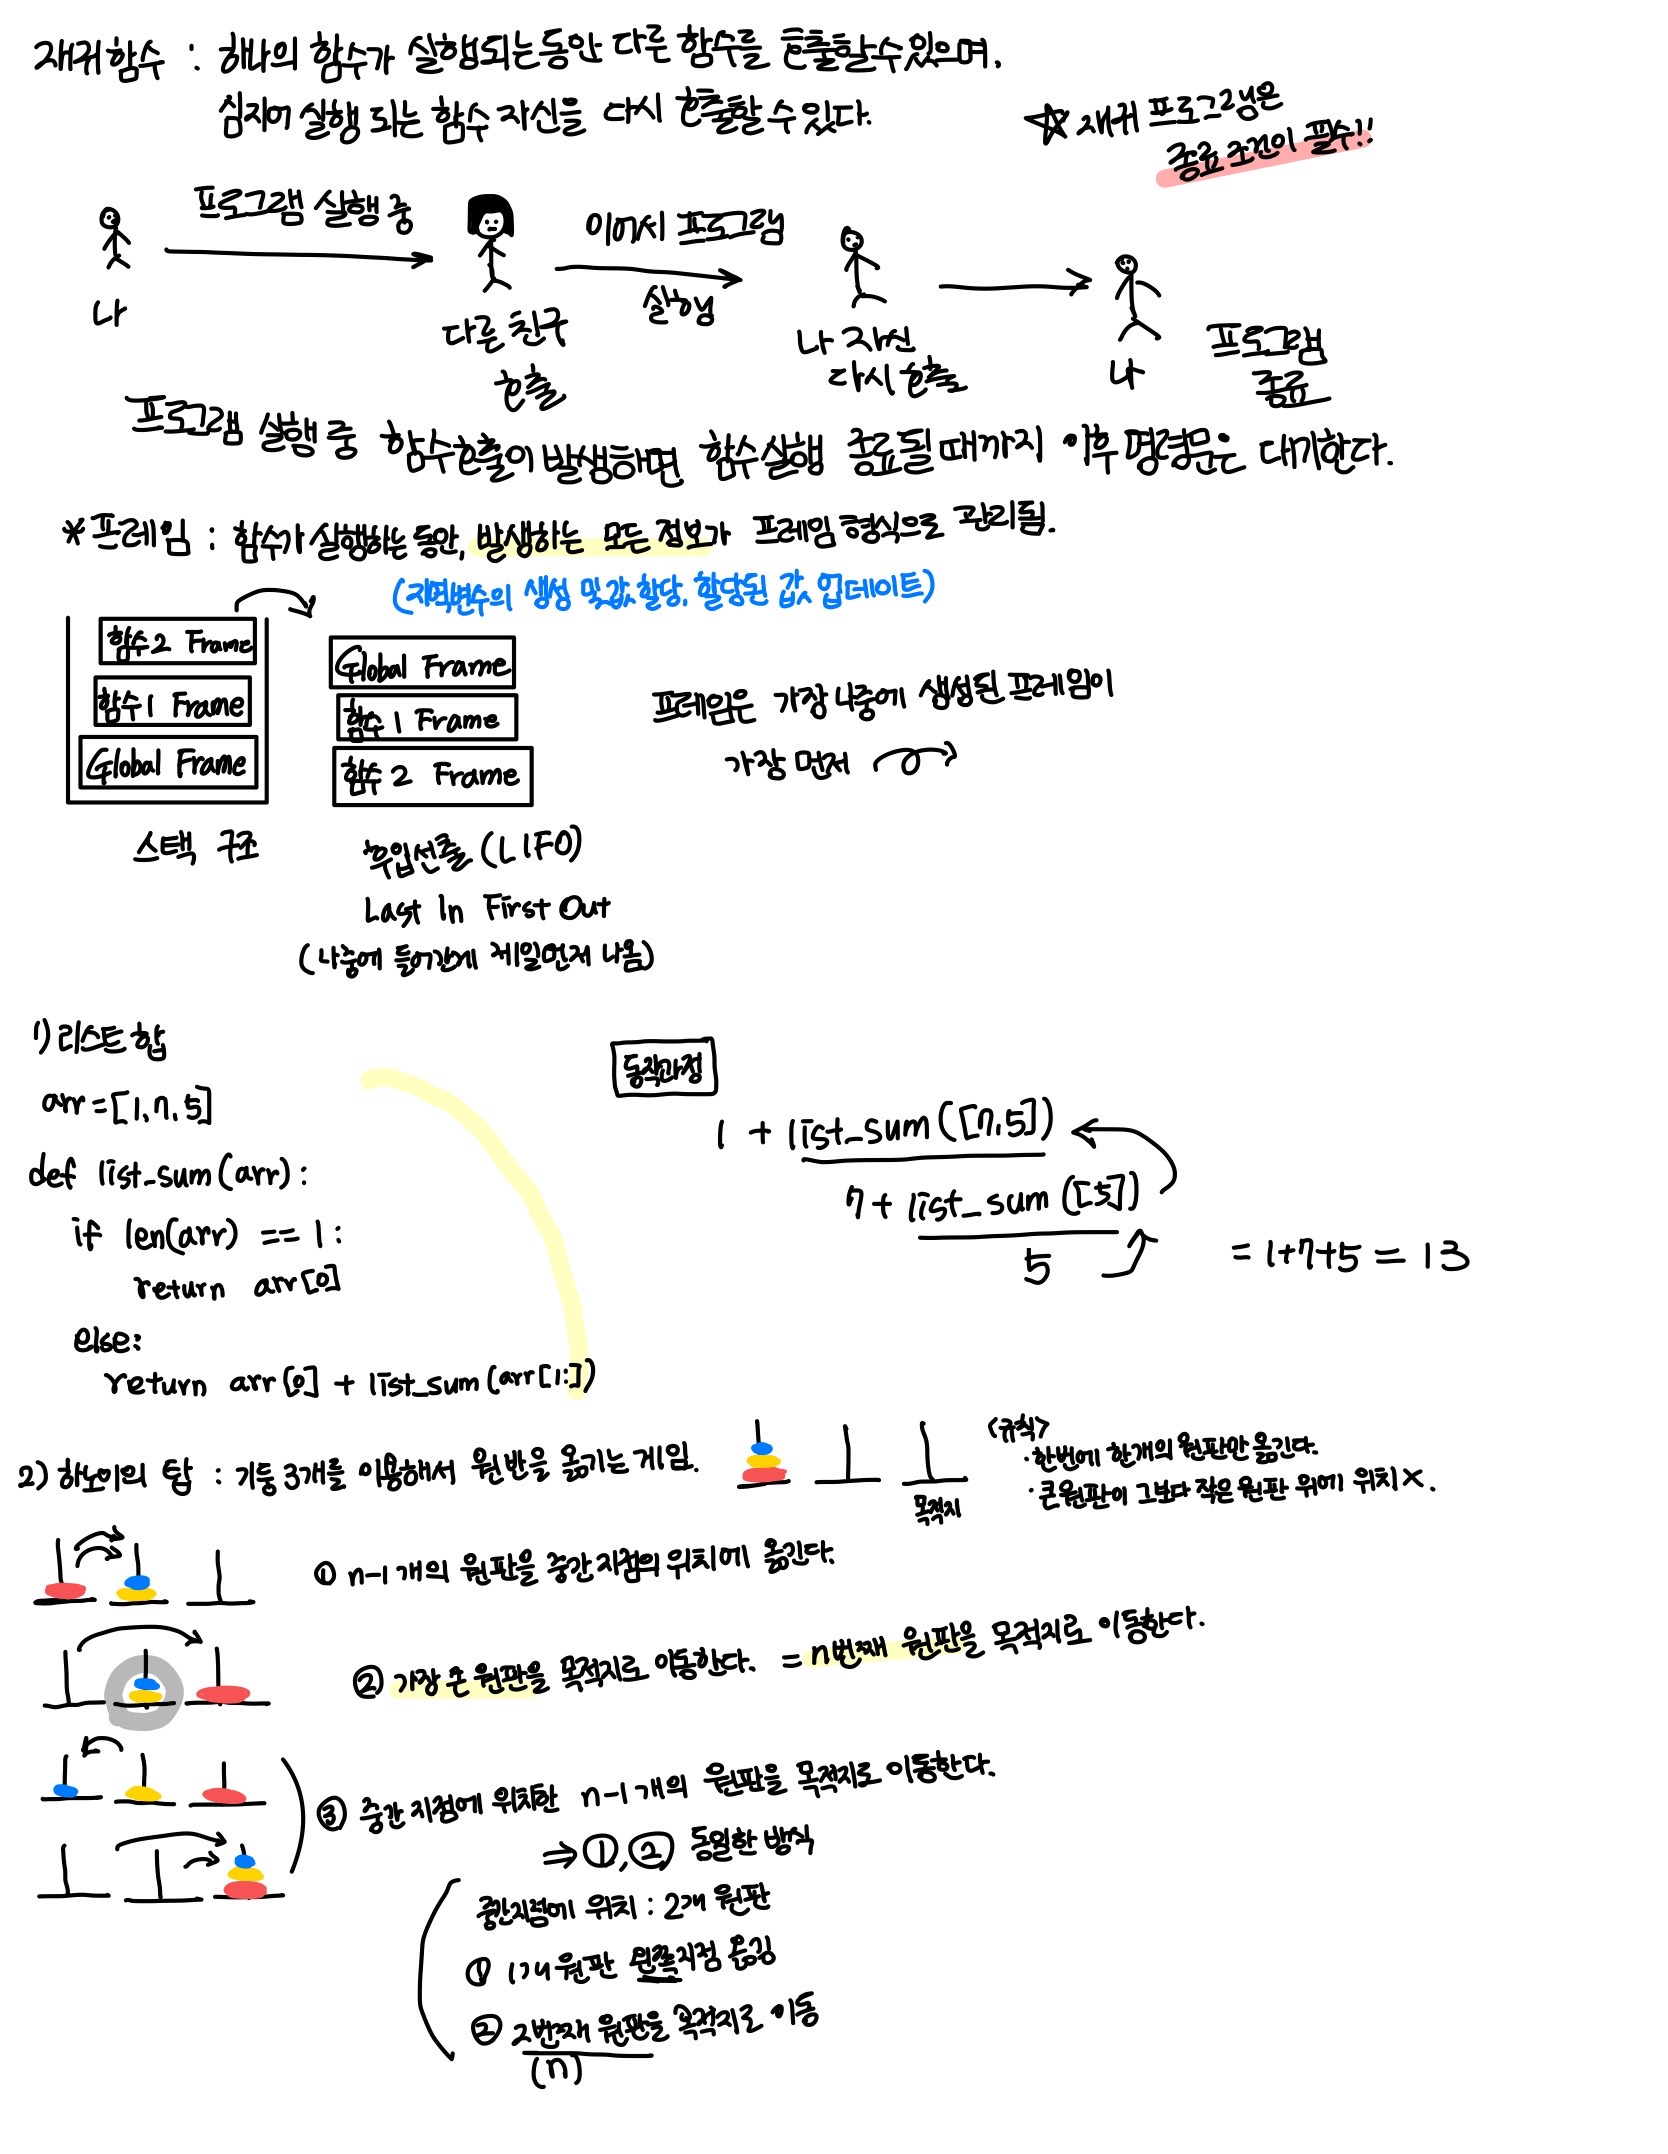 재귀함수 : 하나의 함수가 실행되는동안 다른 함수를 호출할수있으며,
심지어 실행 되는 함수 자신을 다시 호출할 수 있다.
☆ 재귀 프로그램은
종료 조건이 필수!!
프로그램 실행 중
이어서 프로그램
실행
나
다른 친구
호출
나 자신
다시 호출
나
프로그램
종료
프로그램 실행 중 함수호출이 발생하면 함수실행 종료될 때까지 이후 명령문은 대기한다.
* 프레임 : 함수가 실행하는 동안, 발생하는 모든 정보가 프레임 형식으로 관리됨.
(지역변수의 생성 및 값 할당, 할당된 값 업데이트)
함수2 Frame
함수1 Frame
Global Frame
스택 구조
Global Frame
함수1 Frame
함수2 Frame
후입선출 (LIFO)
Last In First Out
(나중에 들어간게 제일먼저 나옴)
프레임은 가장 나중에 생성된 프레임이
가장 먼저
1) 리스트 합
arr=[1,7,5]
def list_sum(arr):
if len(arr) == 1:
return arr[0]
else:
return arr[0] + list_sum(arr[1:])
동작과정
1 + list_sum([7,5])
7+ list_sum([5])
5
= 1+7+5 = 13
2) 하노이의 탑 : 기둥 3개를 이용해서 원반을 옮기는 게임.
목적지
<규칙>
· 한번에 한개의 원판만 옮긴다.
· 큰원판이 그보다 작은 원판 위에 위치 X.
① n-1개의 원판을 중간 지점의 위치에 옮긴다.
② 가장 큰 원판을 목적지로 이동한다. = n번째 원판을 목적지로 이동한다.
③ 중간 지점에 위치한 n-1개의 원판을 목적지로 이동한다.
⇒ ①,② 동일한 방식
중간지점에 위치 : 2개 원판
① 1개 원판 왼쪽지점 옮김
② 2번째 원판을 목적지로 이동
(n)